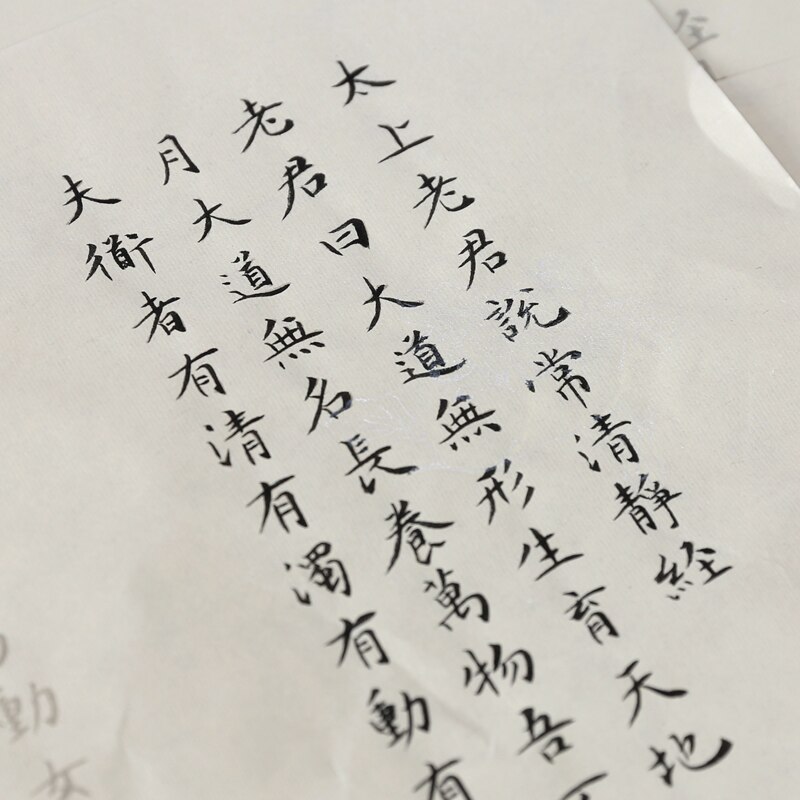 太上老君說常清靜経
老君曰大道無形生育天地
月大道無名長養萬物吾
夫衜者有清有濁有動有
動